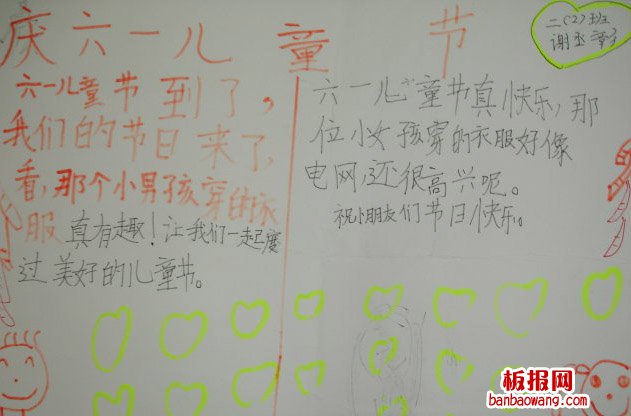 庆六一儿童节
二(2)班
谢丞
六一儿童节到了,
我们的节日来了,
看,那个小男孩穿的衣
服真有趣!让我们一起度
过美好的儿童节。
六一儿童节真快乐,那
位小女孩穿的衣服好像
电网,还很高兴呢。
祝小朋友们节日快乐。
板报网
banbaowang.com